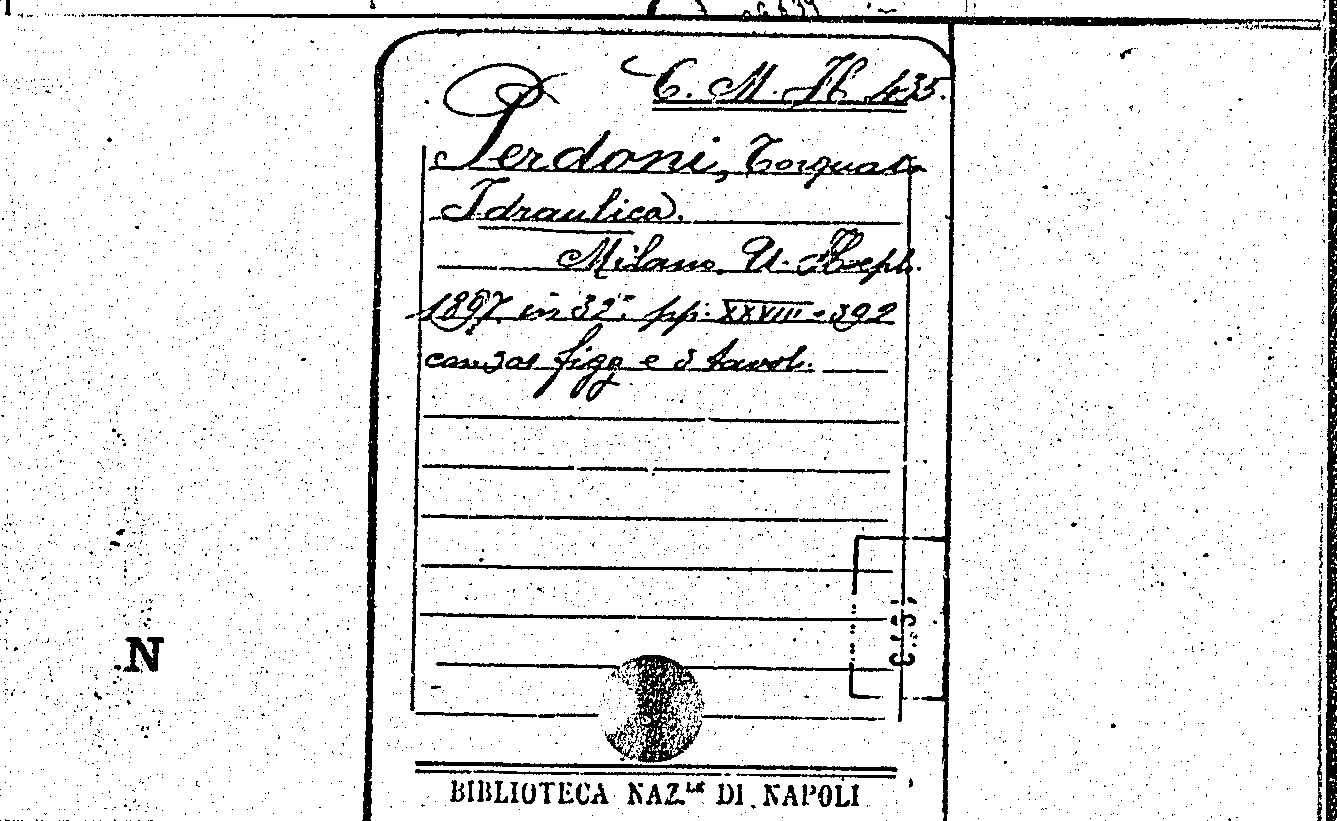 C. M. H 435.
Perdoni, Torquato
Idraulica.
Milano, U. Hoepli.
1897. in 32° pp. XXVIII-392
con 301 figg e 3 tavol.
C.I.S.
N
BIBLIOTECA NAZ.LE DI NAPOLI